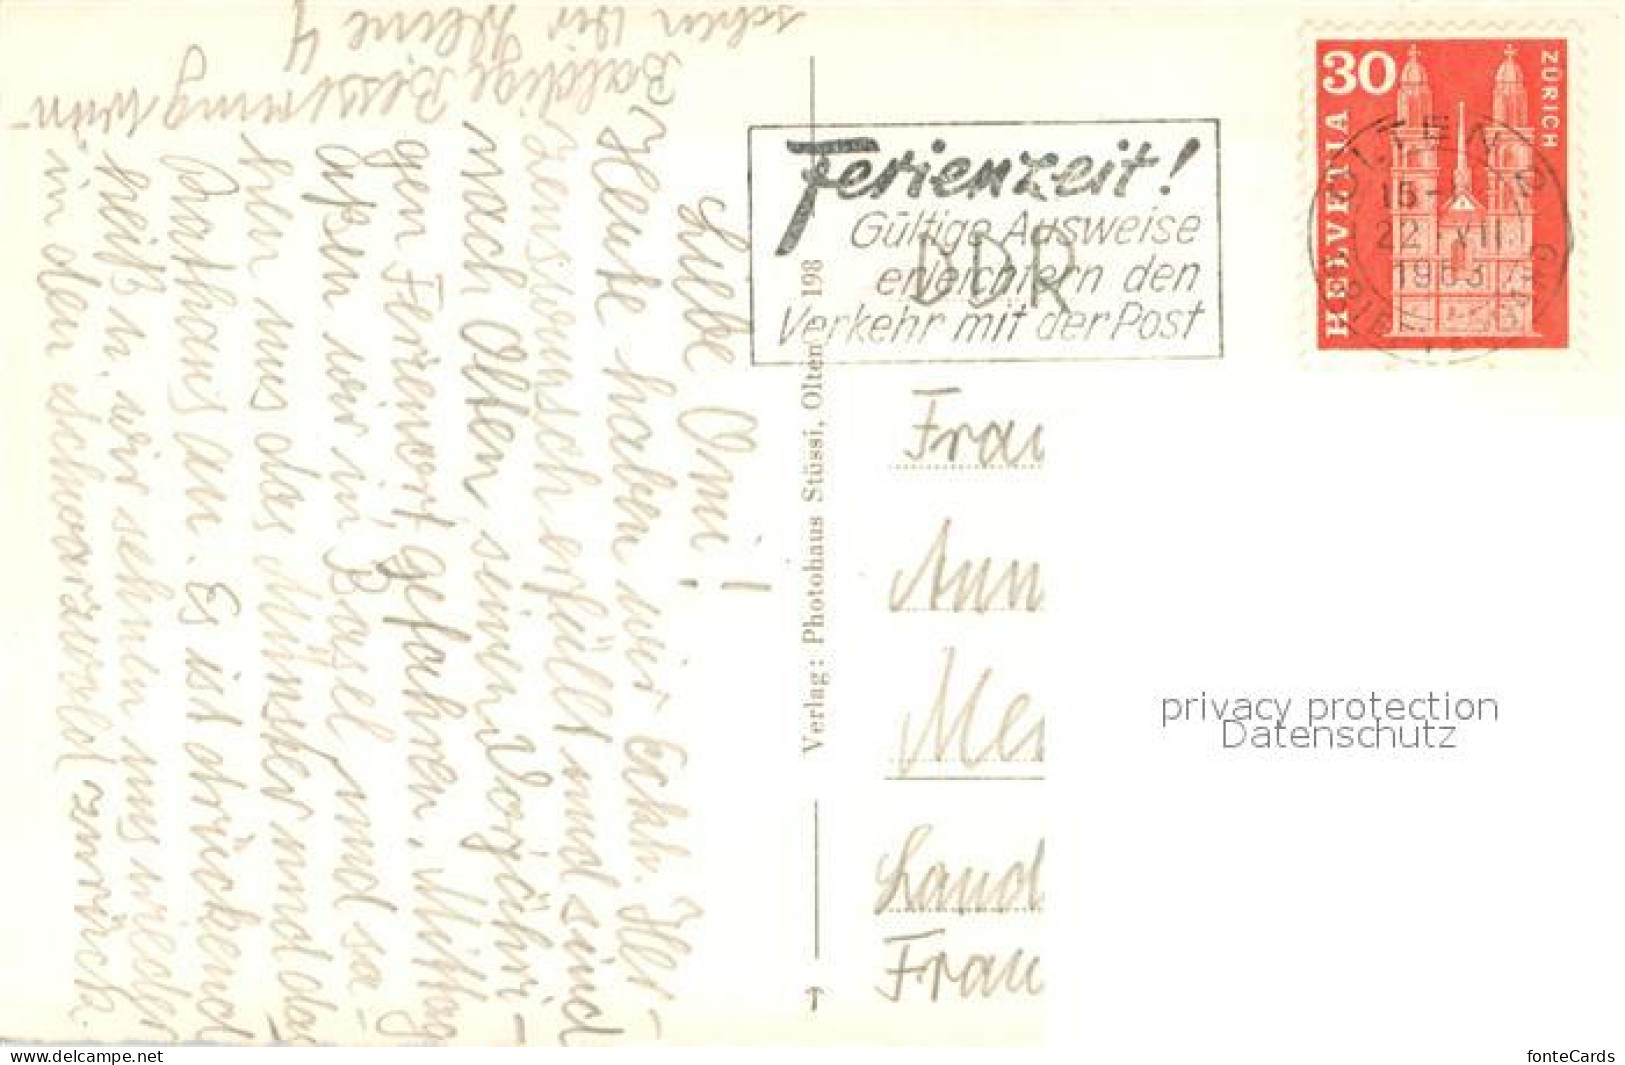 Liebe Omi!
Heute haben wir Eckh. Her-
zenswunsch erfüllt und sind
nach Olten seinen Vorjähri-
gen Ferienort gefahren. Mittag
aßen wir in Basel und sa-
hen uns das Münster und das
Rathaus an. Es ist drückend
heiß u. wir sehnen uns wieder
in den Schwarzwald zurück.
Baldige Besserung wün-
schen Wir Kleine 4
Verlag: Photohaus Stüssi, Olten 198
Ferienzeit!
Gültige Ausweise
erleichtern den
Verkehr mit der Post
30
HELVETIA
ZÜRICH
OLTEN
22.VII.
1963
DDR
Frau
Ann
Mei
Land
Frau
privacy protection
Datenschutz
www.delcampe.net
fonteCards